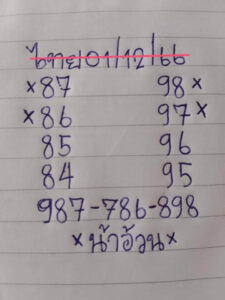 ไทย01/12/66
×87 98×
×86 97×
85 96
84 95
987-786-898
×น้าอ้วน×